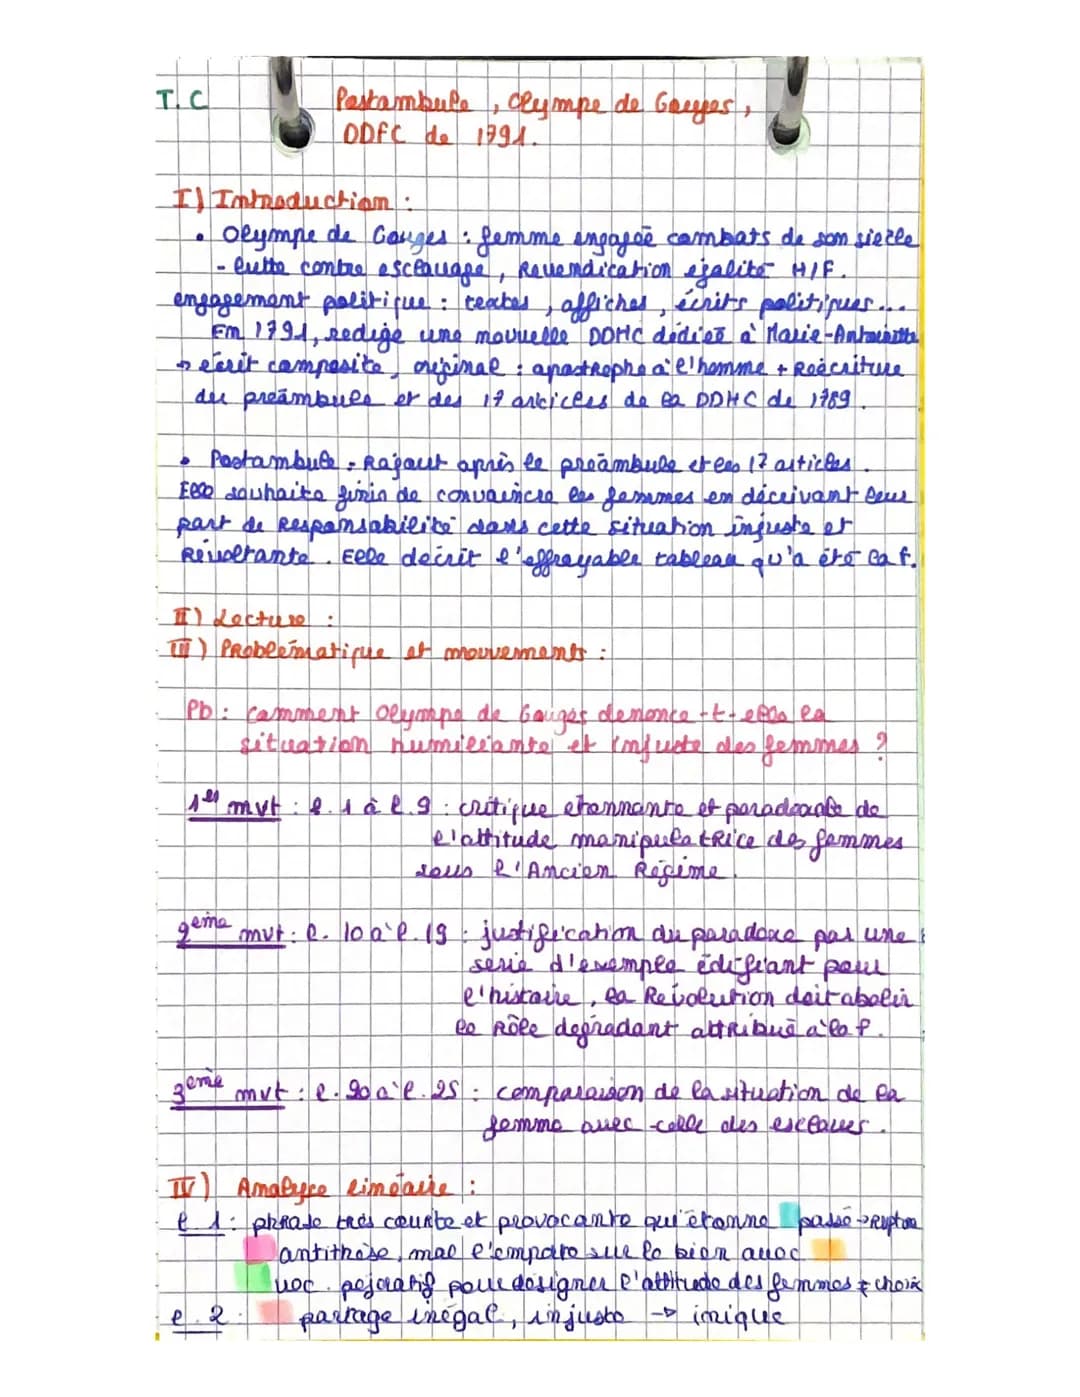 T.C
Postambule, Olympe de Gouges,
DDFC de 1791.
I) Introduction :
• Olympe de Gouges : femme engagée combats de son siècle
- lutte contre esclavage, Revendication égalité H/F.
engagement politique : textes, affiches, écrits politiques...
Em 1791, redige une nouvelle DDHC dédiée à Marie-Antoinette
→ écrit composite, original : apostrophe à l'homme + Reécriture
du preâmbule et des 17 articles de la DDHC de 1789.
• Postambule : Rajout après le preâmbule et les 17 articles.
Elle souhaite finir de convaincre les femmes en décrivant leur
part de Responsabilité dans cette situation injuste et
Révoltante. Elle décrit l'effrayable tableau qu'a été la f.
II) Lecture :
III) Problématique et mouvements :
Pb : Comment Olympe de Gouges denonce-t-elle la
situation humiliante et injuste des femmes ?
1er mvt : l. 1 à l. 9 : critique étonnante et paradoxale de
l'attitude manipulatRice des femmes
sous l'Ancien Régime.
2eme mvt : l. 10 à l. 19 : justification du paradoxe par une
serie d'exemple édifiant pour
l'histoire, la Révolution doit abolir
le Rôle degradant attRibué à la f.
3eme mvt : l. 20 à l. 25 : comparaison de la situation de la
femme avec celle des esclaves.
IV) Analyse linéaire :
l. 1 : phRase trés courte et provocante qui étonne passé → Rupture
antithèse, mal l'emporte sur le bien avec
voc. pejoratif pour désigner l'attitude des femmes ≠ choix
l. 2 : partage inégal, injuste → inique